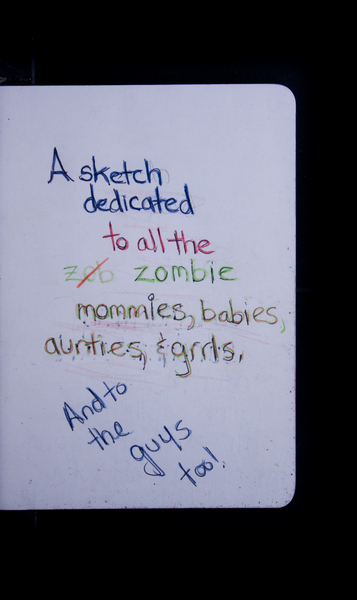 A sketch
dedicated
to all the
zob zombie
mommies, babies,
aunties, & grrls.
And to
the
guys
too!